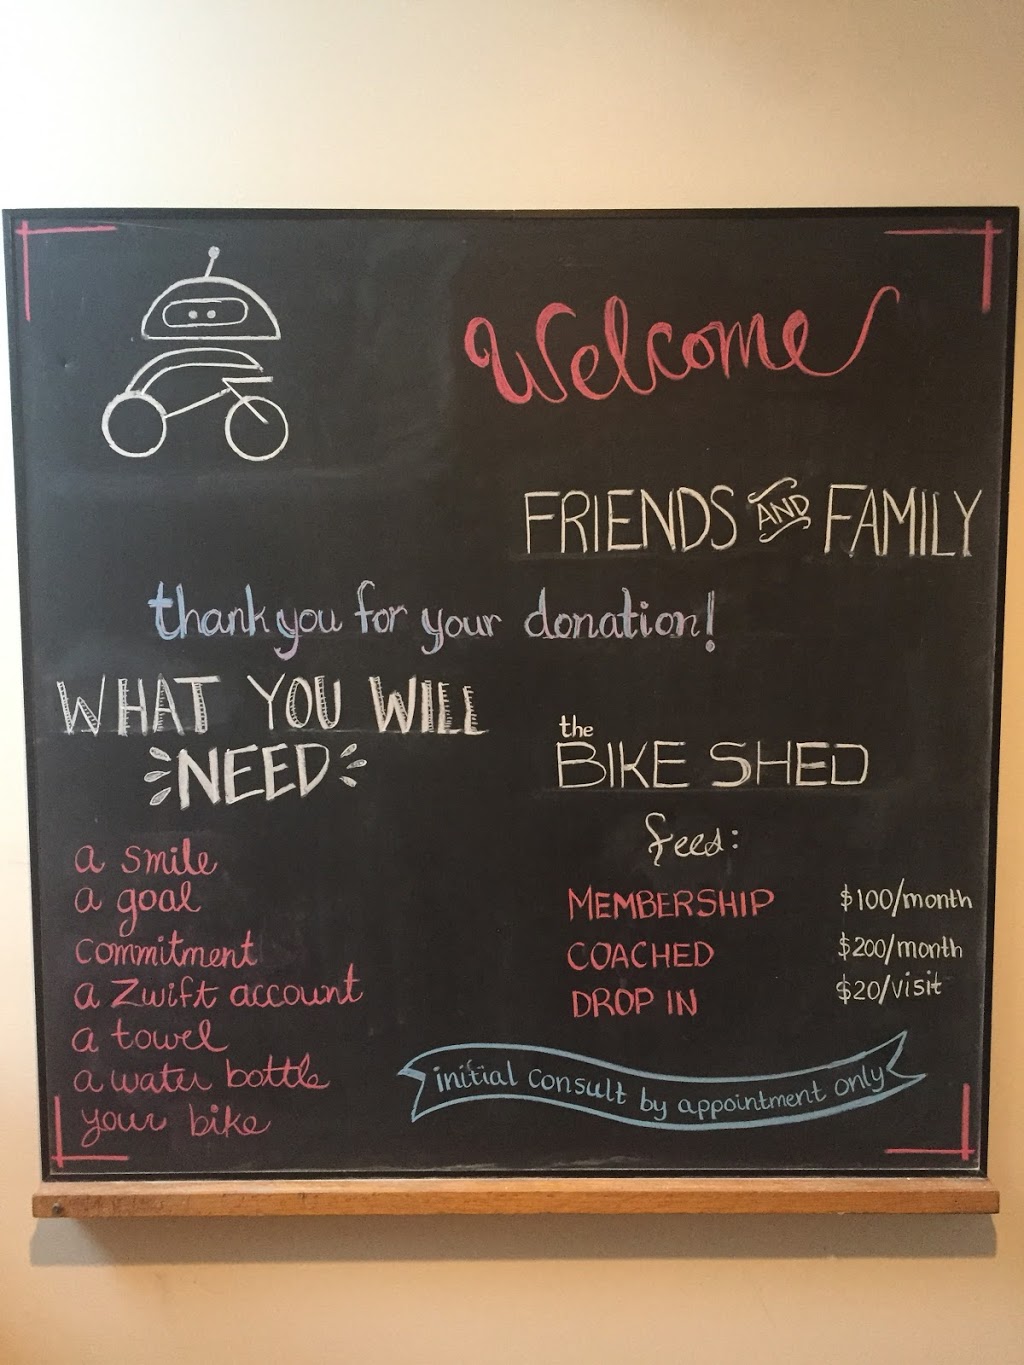 Welcome
FRIENDS AND FAMILY
thank you for your donation!
WHAT YOU WILL
NEED
a smile
a goal
commitment
a Zwift account
a towel
a water bottle
your bike
the
BIKE SHED
fees:
MEMBERSHIP $100/month
COACHED $200/month
DROP IN $20/visit
initial consult by appointment only